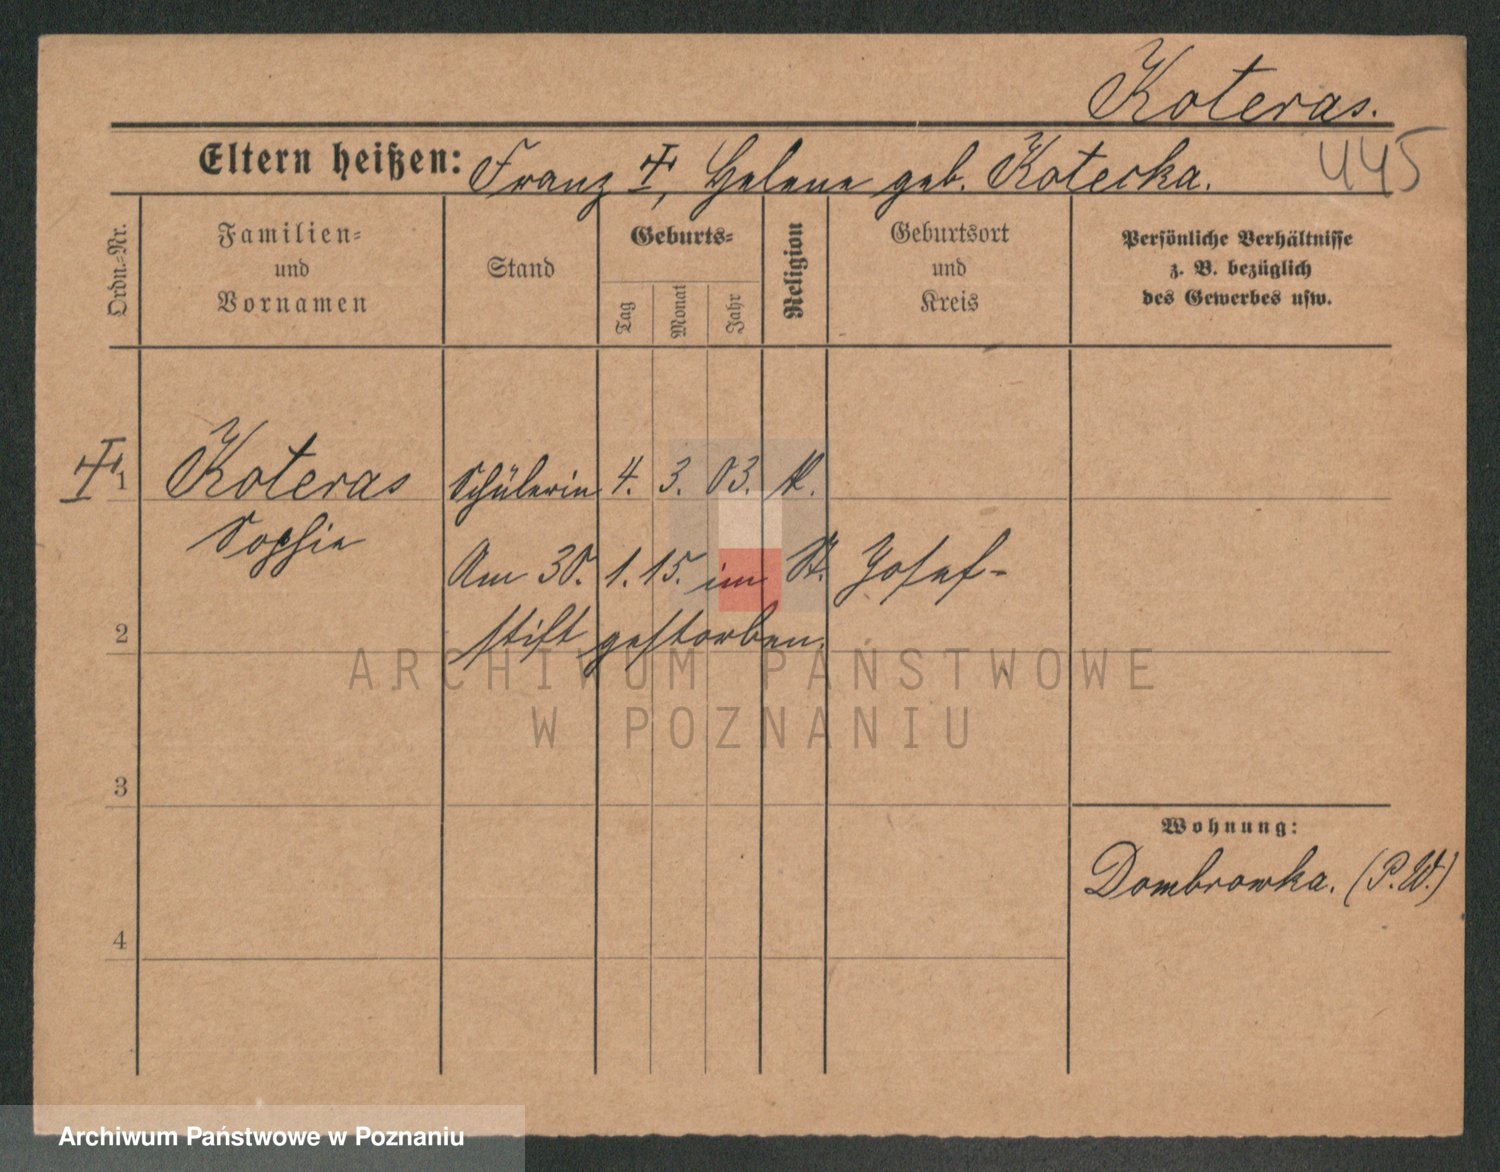 Koteras.
Eltern heißen: Franz †, Helene geb. Kotecka.
445
Ordn.-Nr.
Familien-
und
Vornamen
Stand
Geburts-
Tag
Monat
Jahr
Religion
Geburtsort
und
Kreis
Persönliche Verhältnisse
z. B. bezüglich
des Gewerbes usw.
† 1 Koteras Schülerin 4. 3. 03. k.
Sophie
Am 30. 1. 15. im St. Josef-
2 stift gestorben.
ARCHIWUM PAŃSTWOWE
W POZNANIU
3
Wohnung:
Dombrowka. (P.W.)
4
Archiwum Państwowe w Poznaniu